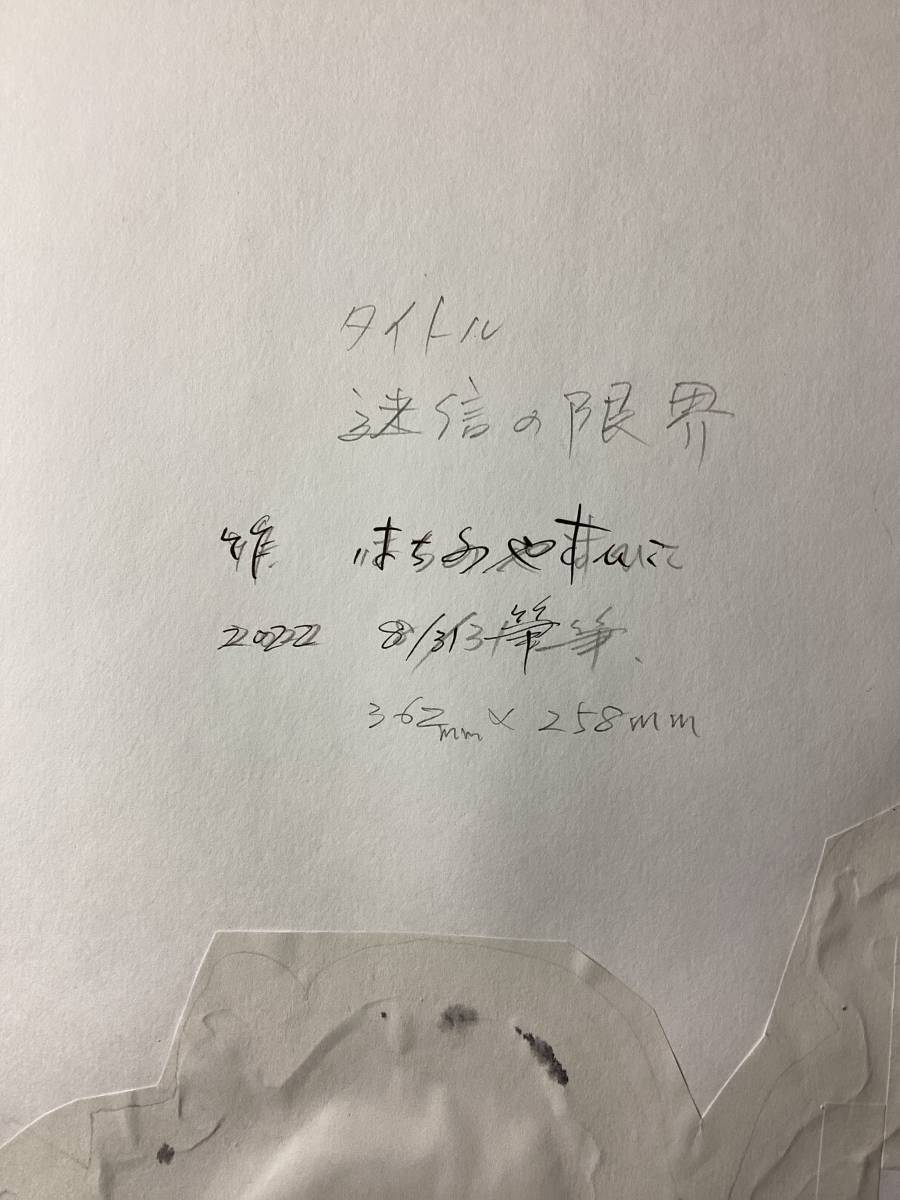 タイトル
迷信の限界
作 はちみやまんにこ
2022 8/313 筆筆.
362mm × 258mm